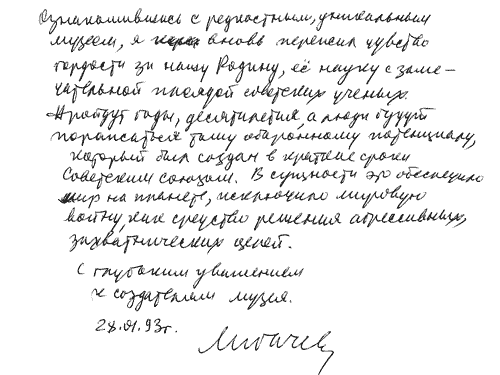 Ознакомившись с редкостным, уникальным
музеем, я вновь пережил чувство
гордости за нашу Родину, её науку с заме-
чательной плеядой советских ученых.
Пройдут годы, десятилетия, а люди будут
поражаться тому оборонному потенциалу,
который был создан в краткие сроки
Советским союзом. В сущности это обеспечило
мир на планете, исключило мировую
войну, как средство решения агрессивных,
захватнических целей.
С глубоким уважением
к создателям музея.
28.01.93г.
Лигачев